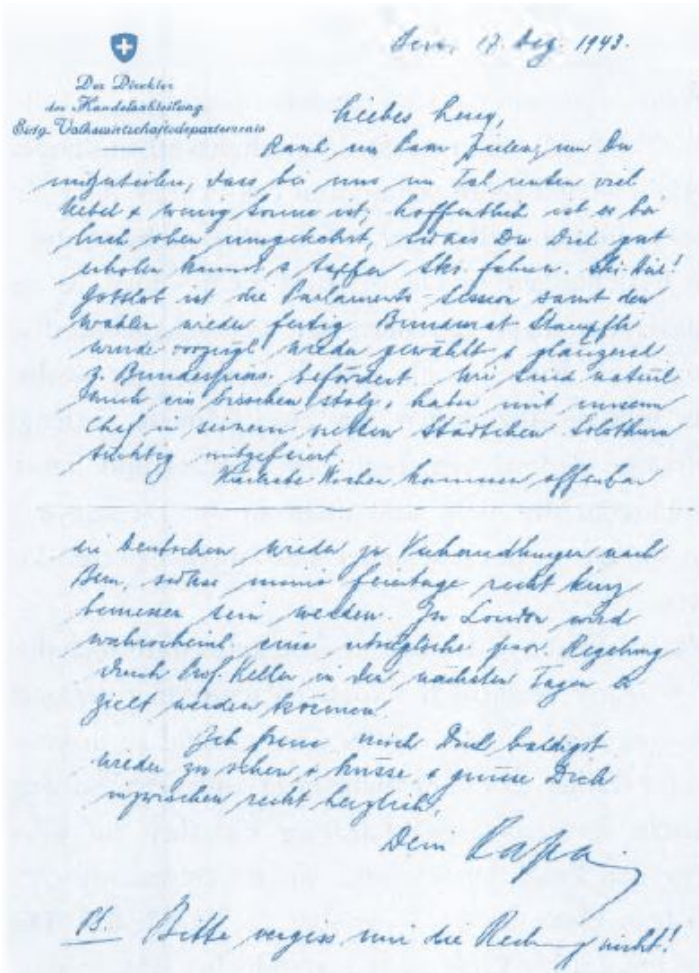 Bern, 17. Dez. 1943.
Der Direktor
der Handelsabteilung
Eidg. Volkswirtschaftsdepartements
Liebes
um Dir
mitzuteilen, dass bei uns im Tal unten viel
Nebel & wenig Sonne ist, hoffentlich ist es bei
Euch oben umgekehrt, sodass Du Dich gut
erholen kannst & Ski fahren. Ski-Heil!
Gottlob ist die Parlaments-Session samt den
Wahlen wieder fertig Bundesrat Stampfli
wurde vorzügl. wieder gewählt & glänzend
z. Bundespräs. befördert. Wir sind natürl.
auch ein bisschen stolz, haben mit unserm
Chef in seinem netten Städtchen Solothurn
tüchtig mitgefeiert.
Nächste Woche kommen offenbar
die Deutschen wieder zu Verhandlungen nach
Bern, sodass meine Feiertage recht kurz
bemessen sein werden. In London wird
wahrscheinl. eine prov. Regelung
durch Prof. Keller in den nächsten Tagen er
zielt werden können.
Ich freue mich Dich baldigst
wieder zu sehen & küsse & grüsse Dich
inzwischen recht herzlich.
Dein Papa
PS. Bitte vergiss mir die Rechng nicht!